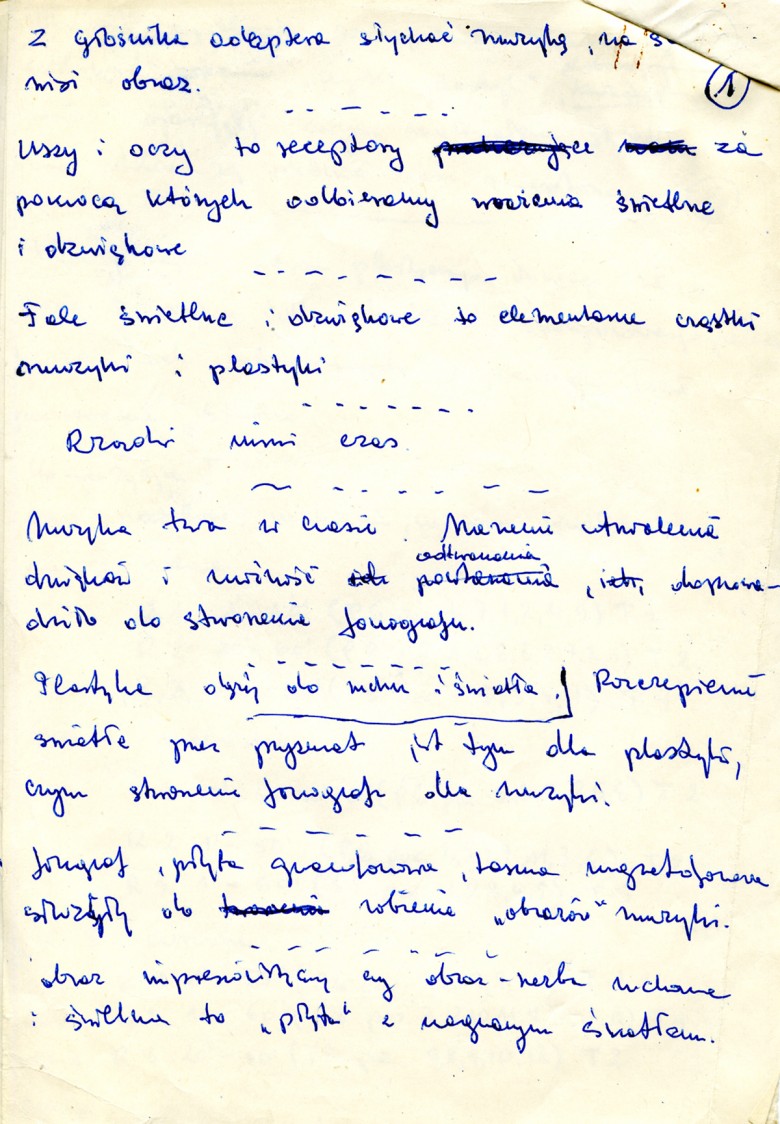 Z głośnika adaptera słychać muzykę, na
wisi obraz.
①
Uszy i oczy to receptory za
pomocą których odbieramy wrażenia świetlne
i dzwiękowe
Fale świetlne i dzwiękowe to elementarne cząstki
muzyki i plastyki
Rządzi nimi czas.
Muzyka trwa w czasie. Marzenie utrwalenia
dzwięków i możność odtwarzania powtarzania, doprowa-
dziło do stworzenia fonografu.
Plastyka dąży do ruchu i światła. Rozszczepienie
światła przez pryzmat jest tym dla plastyki,
czym stworzenie fonografu dla muzyki.
fonograf, płyta gramofonowa, tasma magnetofonowa
służyły do robienia „obrazów" muzyki.
obraz impresjonistyczny czy obraz-rzeźba ruchoma
i świetlna to „płyta" z nagranym światłem.